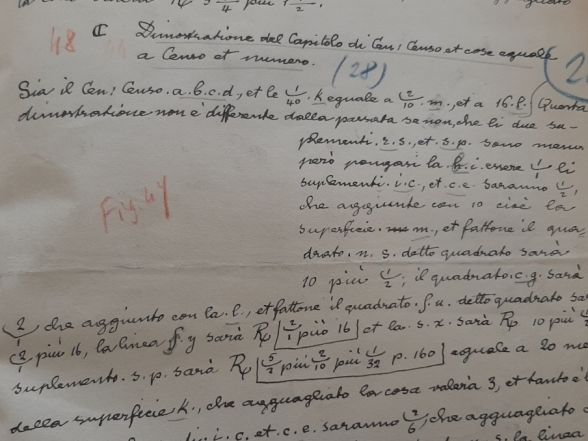 più
48 ℂ Dimostratione del Capitolo di Cen: Censo et cose equale
a Censo et numero. (28) (2
Sia il Cen: Censo. a.b.c.d, et le 1/40. k equale a 2/10. m., et a 16. l. Questa
dimostratione non è differente dalla passata se non, che li due su-
plementi. r. s., et s. p. sono menus
però pongasi la h. i. essere 1/1 li
suplementi. i. c., et c. e. saranno
che aggiunte con 10 cioè la
superficie. m., et fattone il qua-
drato. n. s. detto quadrato sarà
Fig. 44
10 più 1/2; il quadrato. c. g. sarà
che aggiunto con la. l., et fattone il quadrato. f. u. detto quadrato sa
più 16, la linea f. y sarà R 2/1 più 16 et la. s. x. sarà R 10 più
suplemento. s. p. sarà R 5/2 più 2/10 più 1/32 p. 160 equale a 20 me
della superficie k., che agguagliato la cosa valerà 3, et tanto è
i. c. et c. e. saranno 2/6, che agguagliato
la linea